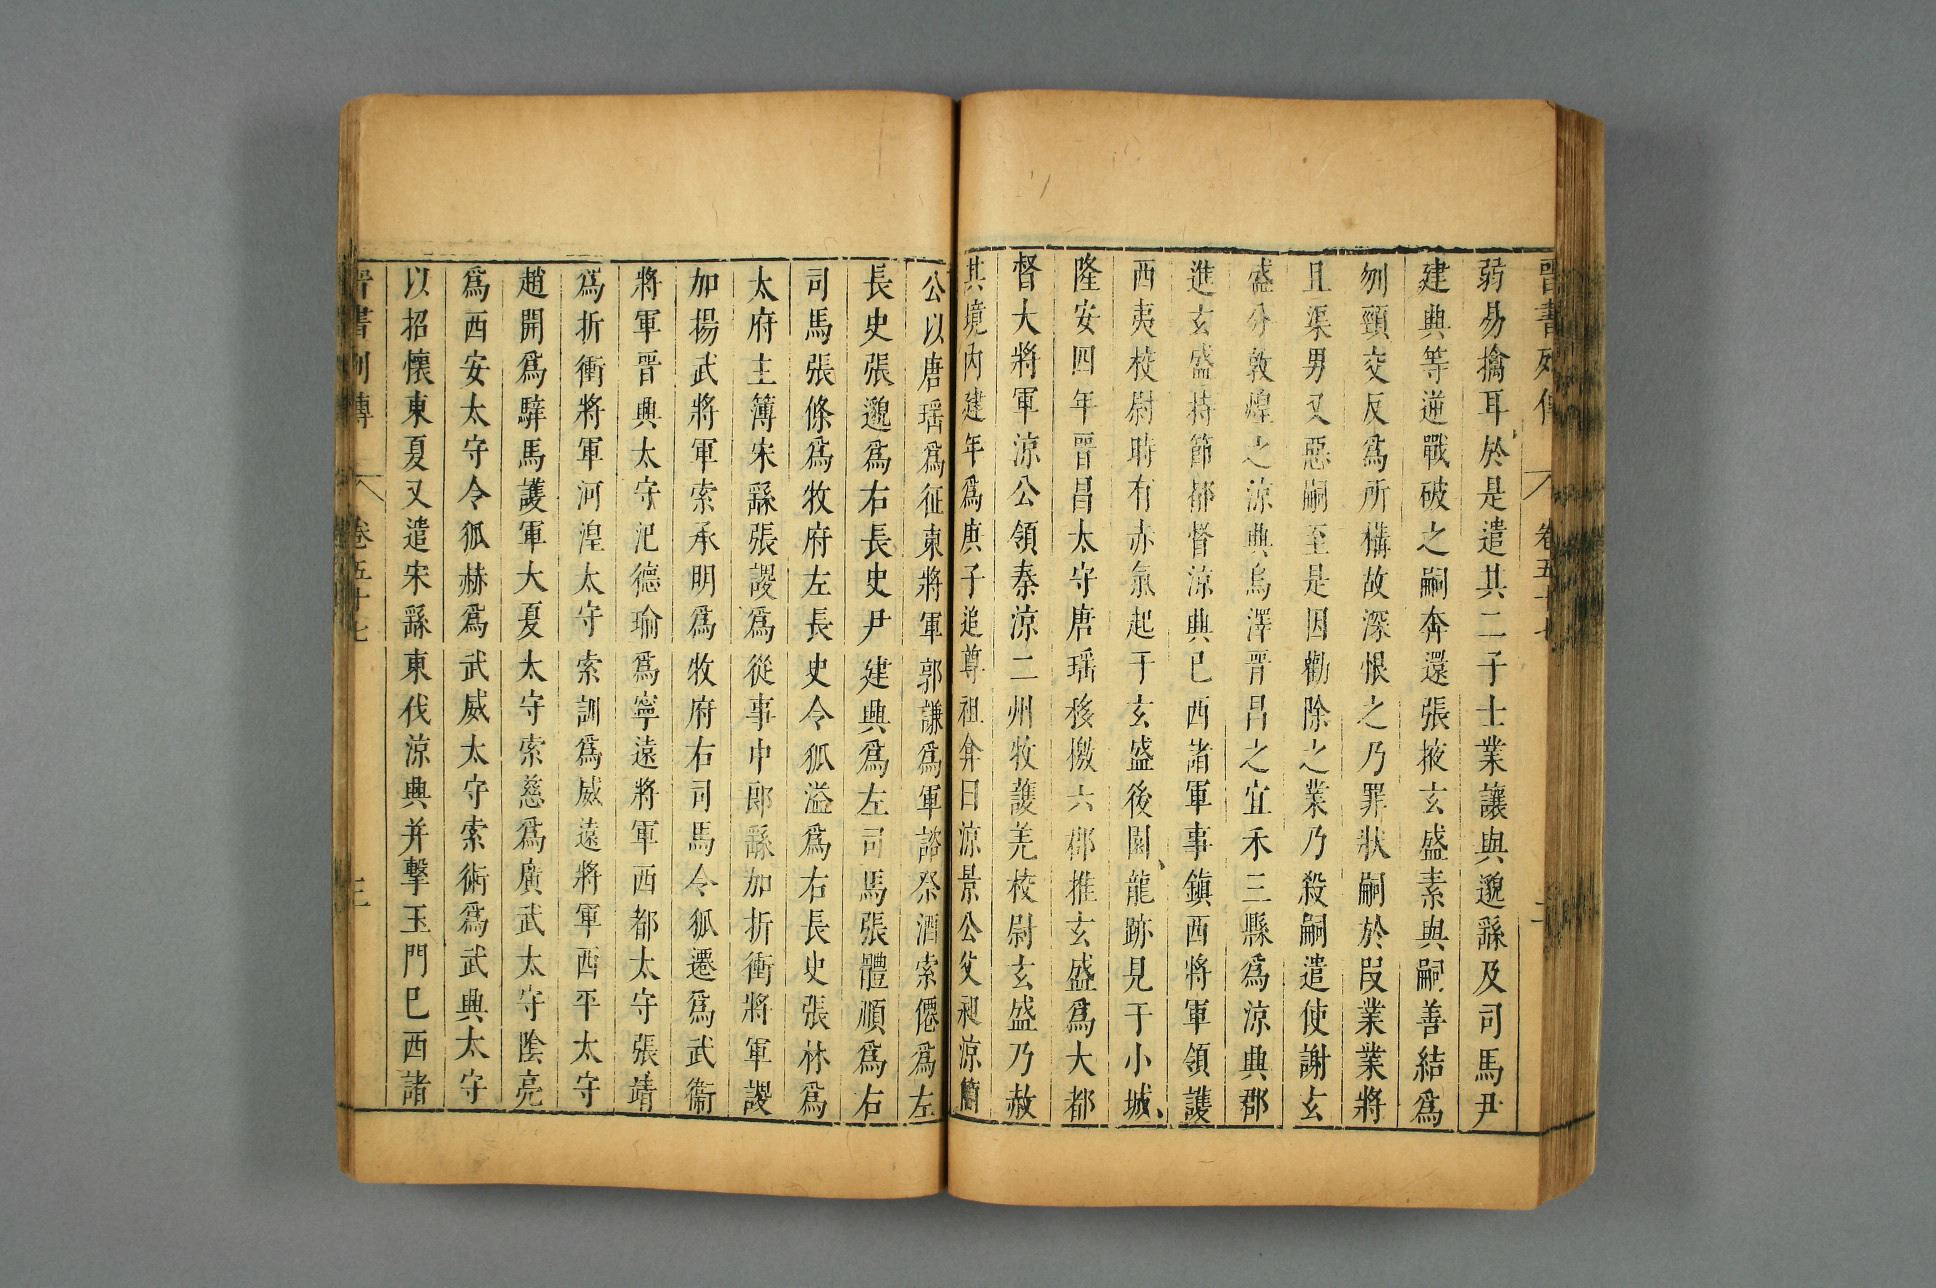 晉書列傳 卷五十七 二
弱易擒耳於是遣其二子士業讓與邈繇及司馬尹
建興等逆戰破之嗣奔還張掖玄盛素與嗣善結爲
刎頸交反爲所構故深恨之乃罪狀嗣於段業業將
且渠男又惡嗣至是因勸除之業乃殺嗣遣使謝玄
盛分敦煌之涼興烏澤晋昌之宜禾三縣爲涼興郡
進玄盛持節都督涼興已西諸軍事鎮西將軍領護
西夷校尉時有赤氣起于玄盛後園龍跡見于小城
隆安四年晋昌太守唐瑶移檄六郡推玄盛爲大都
督大將軍涼公領秦涼二州牧護羌校尉玄盛乃赦
其境內建年爲庚子追尊祖弇曰涼景公父昶涼簡
公以唐瑶爲征東將軍郭謙爲軍諮祭酒索僊爲左
長史張邈爲右長史尹建興爲左司馬張體順爲右
司馬張條爲牧府左長史令狐溢爲右長史張林爲
太府主簿宋繇張謖爲從事中郎繇加折衝將軍謖
加揚武將軍索承明爲牧府右司馬令狐遷爲武衞
將軍晋興太守氾德瑜爲寧遠將軍西都太守張靖
爲折衝將軍河湟太守索訓爲威遠將軍西平太守
趙開爲騂馬護軍大夏太守索慈爲廣武太守陰亮
爲西安太守令狐赫爲武威太守索術爲武興太守
以招懷東夏又遣宋繇東伐涼興并擊玉門已西諸
晉書列傳 卷五十七 三